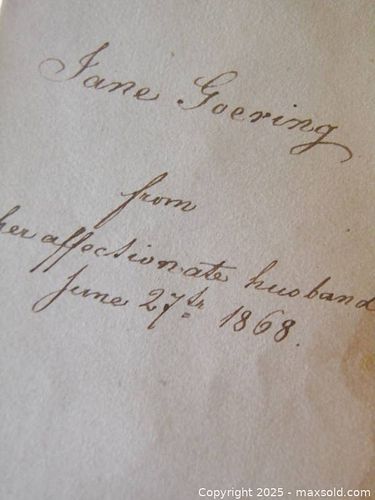 Jane Goering
from
her affectionate husband
June 27th 1868.
Copyright © 2025 - maxsold.com